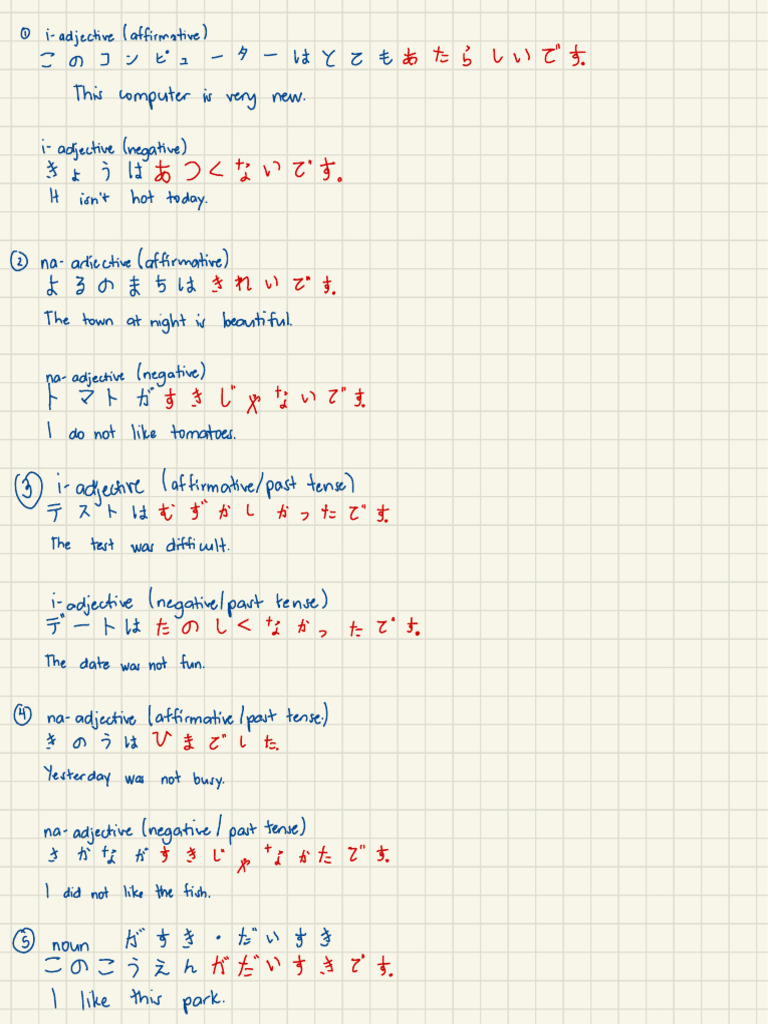 ① i-adjective (affirmative)
このコンピューターはとてもあたらしいです。
This computer is very new.
i-adjective (negative)
きょうはあつくないです。
It isn't hot today.
② na-adjective (affirmative)
よるのまちはきれいです。
The town at night is beautiful.
na-adjective (negative)
トマトがすきじゃないです。
I do not like tomatoes.
③ i-adjective (affirmative/past tense)
テストはむずかしかったです。
The test was difficult.
i-adjective (negative/past tense)
デートはたのしくなかったです。
The date was not fun.
④ na-adjective (affirmative/past tense)
きのうはひまでした。
Yesterday was not busy.
na-adjective (negative/past tense)
さかながすきじゃなかたです。
I did not like the fish.
⑤ noun がすき・だいすき
このこうえんがだいすきです。
I like this park.